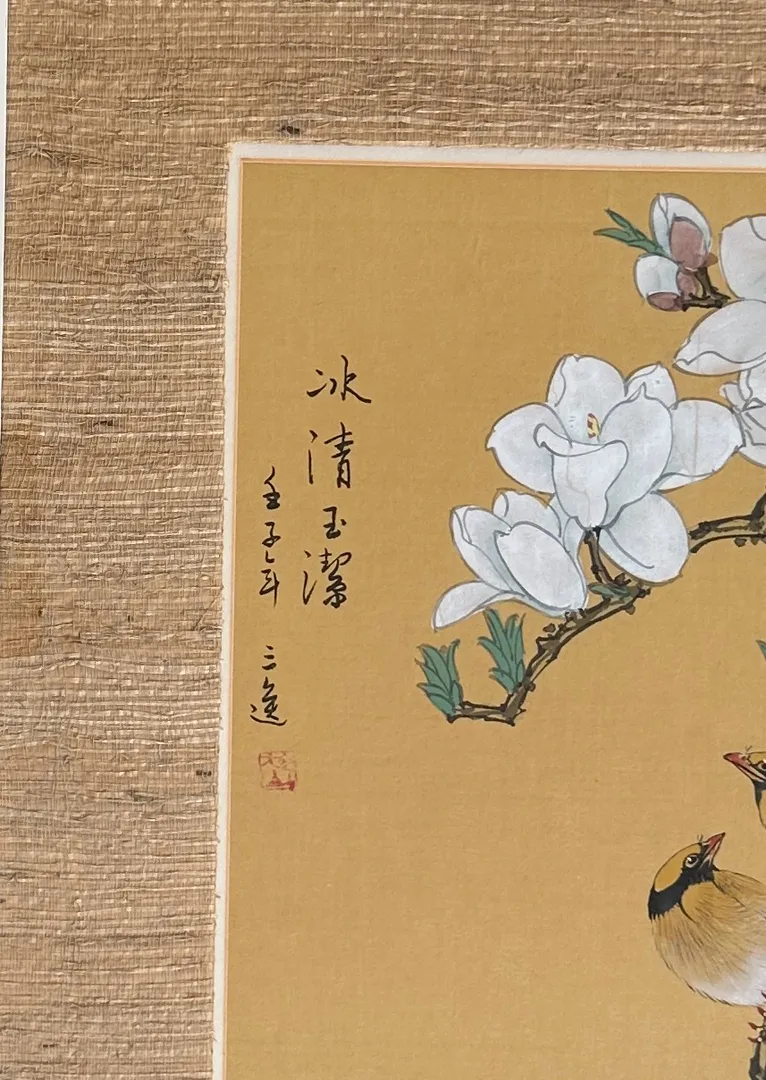 冰清玉潔
壬子年 三逸